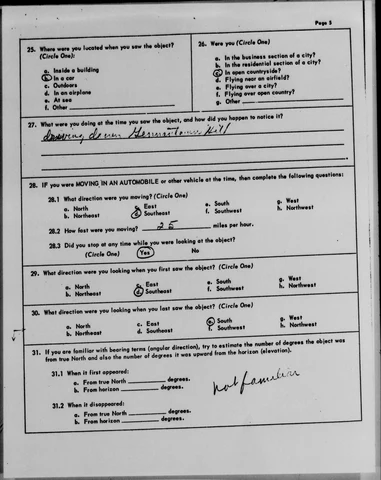 Page 3
25. Where were you located when you saw the object?
(Circle One):
a. Inside a building
b. In a car
c. Outdoors
d. In an airplane
e. At sea
f. Other
26. Were you (Circle One)
a. In the business section of a city?
b. In the residential section of a city?
c. In open countryside?
d. Flying near an airfield?
e. Flying over a city?
f. Flying over open country?
g. Other
27. What were you doing at the time you saw the object, and how did you happen to notice it?
Driving down Germantown Hill
28. IF you were MOVING IN AN AUTOMOBILE or other vehicle at the time, then complete the following questions:
28.1 What direction were you moving? (Circle One)
a. North c. East e. South g. West
b. Northeast d. Southeast f. Southwest h. Northwest
28.2 How fast were you moving? 25 miles per hour.
28.3 Did you stop at any time while you were looking at the object?
(Circle One) Yes No
29. What direction were you looking when you first saw the object? (Circle One)
a. North c. East e. South g. West
b. Northeast d. Southeast f. Southwest h. Northwest
30. What direction were you looking when you last saw the object? (Circle One)
a. North c. East e. South g. West
b. Northeast d. Southeast f. Southwest h. Northwest
31. If you are familiar with bearing terms (angular direction), try to estimate the number of degrees the object was
from true North and also the number of degrees it was upward from the horizon (elevation).
31.1 When it first appeared:
a. From true North degrees.
b. From horizon degrees.
not familiar
31.2 When it disappeared:
a. From true North degrees.
b. From horizon degrees.